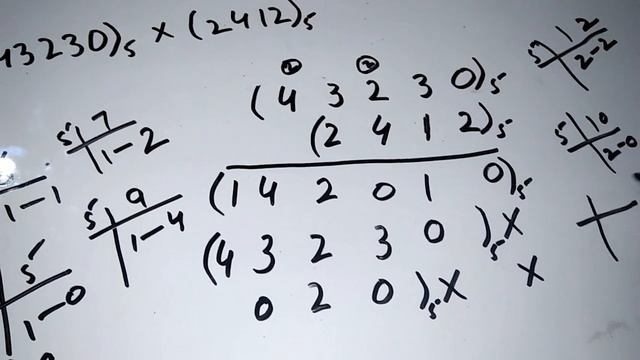 43230)₅ × (2412)₅
① ②
(4 3 2 3 0)₅
(2 4 1 2)₅
(1 4 2 0 1 0)₅
(4 3 2 3 0 )₅X
0 2 0 )₅X X
5 7
1 — 2
1 — 1
5 9
1 — 4
5
1 — 0
5 12
2 — 2
5 10
2 — 0